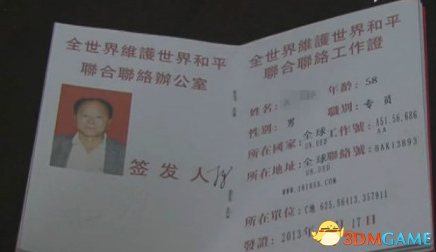 全世界維護世界和平
聯合聯絡辦公室
签发人
全世界維護世界和平
聯合聯絡工作證
姓名: 年齡: 58
性别: 男 職別: 专员
所在國家: 全球 工作號: 351.56.686
AA
所在地址: 全球聯絡號: 0AK13893
所在單位: 625.56413.357911
發證: 2013年 17日
3DMGAME